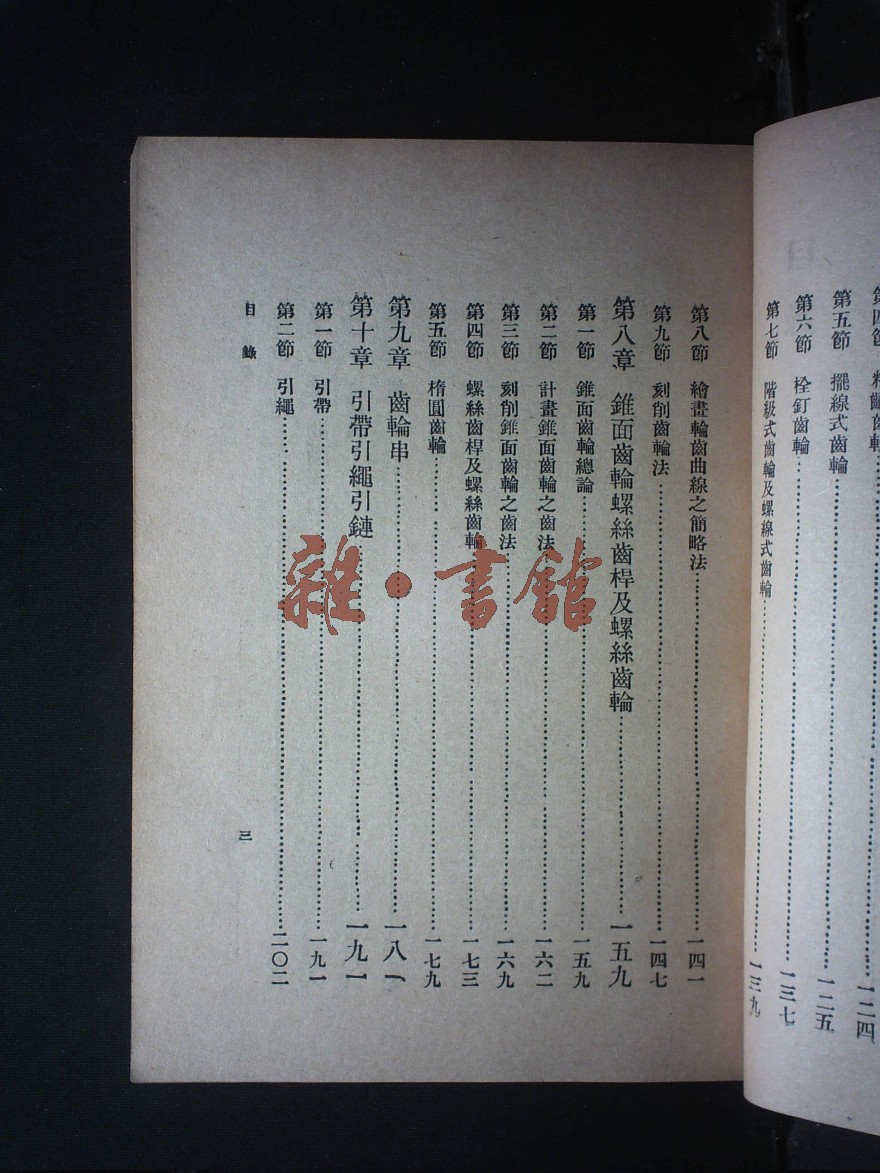 第五節 擺線式齒輪……一二五
第六節 栓釘齒輪……一三七
第七節 階級式齒輪及螺線式齒輪……一三九
第八節 繪畫輪齒曲線之簡略法……一四一
第九節 刻削齒輪法……一四七
第八章 錐面齒輪螺絲齒桿及螺絲齒輪……一五九
第一節 錐面齒輪總論……一五九
第二節 計畫錐面齒輪之齒法……一六二
第三節 刻削錐面齒輪之齒法……一六九
第四節 螺絲齒桿及螺絲齒輪……一七三
第五節 橢圓齒輪……一七九
第九章 齒輪串……一八一
第十章 引帶引繩引鏈……一九一
第一節 引帶……一九一
第二節 引繩……二〇二
目錄
三
雜·書館